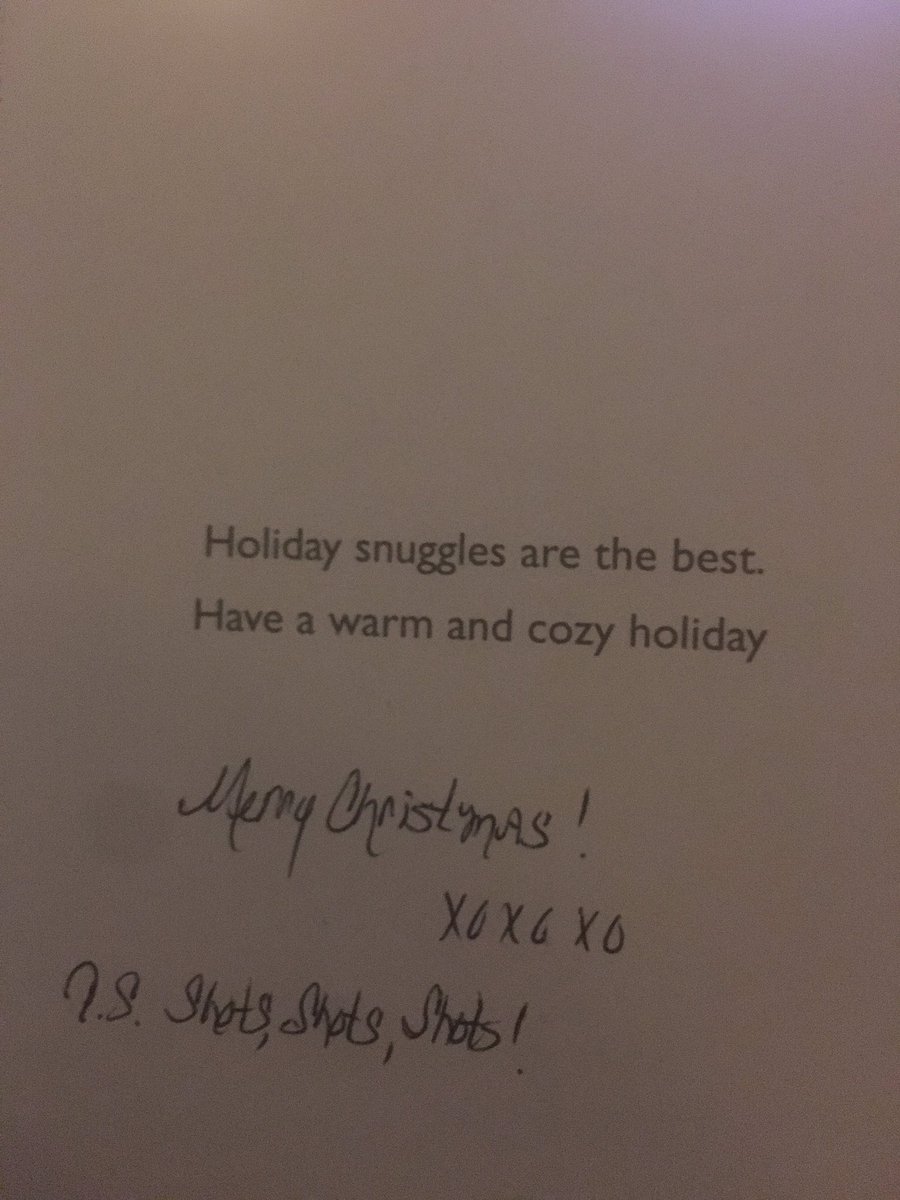 Holiday snuggles are the best.
Have a warm and cozy holiday
Merry Christmas!
XOXO XO
P.S. Shots, Shots, Shots!